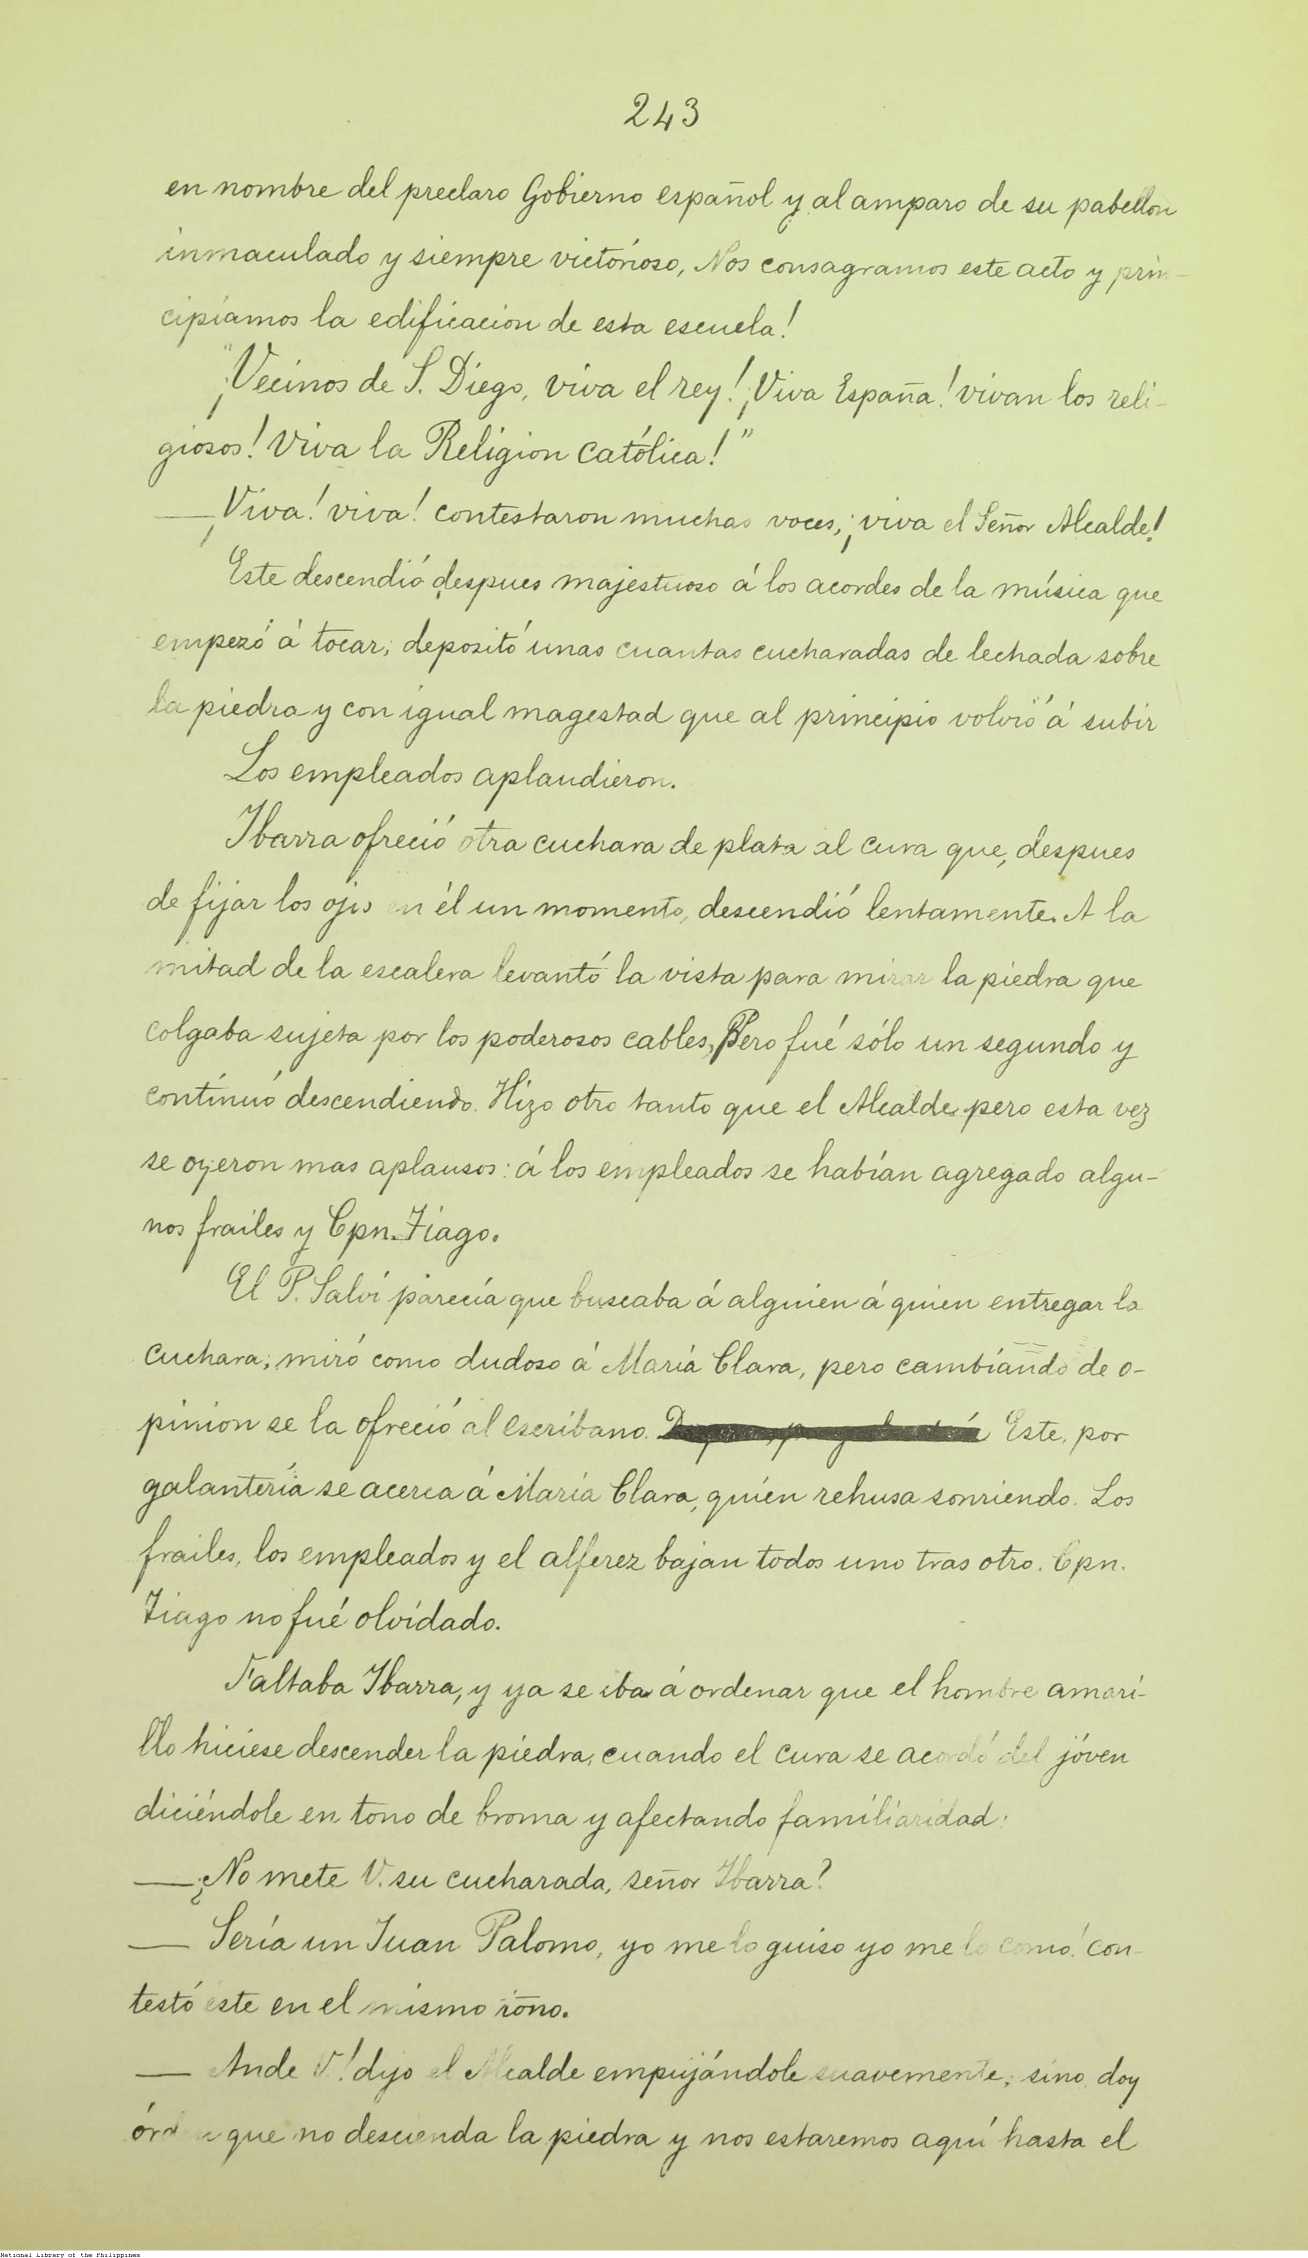 243
en nombre del preclaro Gobierno español y al amparo de su pabellon
inmaculado y siempre victorioso, Nos consagramos este acto y prin-
cipiamos la edificacion de esta escuela!
"¡Vecinos de S. Diego, viva el rey! ¡Viva España! vivan los reli-
giosos! Viva la Religion católica!"
—¡Viva! viva! contestaron muchas voces, ¡viva el Señor Alcalde!
Este descendió despues majestuoso á los acordes de la música que
empezó á tocar; depositó unas cuantas cucharadas de lechada sobre
la piedra y con igual magestad que al principio volvió á subir
Los empleados aplaudieron.
Ibarra ofreció otra cuchara de plata al cura que, despues
de fijar los ojos en él un momento, descendió lentamente. A la
mitad de la escalera levantó la vista para mirar la piedra que
colgaba sujeta por los poderosos cables, Pero fué sólo un segundo y
continuó descendiendo. Hizo otro tanto que el Alcalde, pero esta vez
se oyeron mas aplausos: á los empleados se habían agregado algu-
nos frailes y Cpn. Tiago.
El P. Salví parecía que buscaba á alguien á quien entregar la
cuchara; miró como dudoso á María Clara, pero cambiando de o-
pinion se la ofreció al escribano. Este, por
galantería se acerca á María Clara, quien rehusa sonriendo. Los
frailes, los empleados y el alferez bajan todos uno tras otro. Cpn.
Tiago no fué olvidado.
Faltaba Ibarra, y ya se iba á ordenar que el hombre amari-
llo hiciese descender la piedra, cuando el cura se acordó del jóven
diciéndole en tono de broma y afectando familiaridad:
—¿No mete V. su cucharada, señor Ibarra?
— Sería un Juan Palomo, yo me lo guiso yo me lo como! con-
testó éste en el mismo tono.
— Ande V.! dijo el Alcalde empujándole suavemente; sino doy
órden que no descienda la piedra y nos estaremos aquí hasta el
National Library of the Philippines